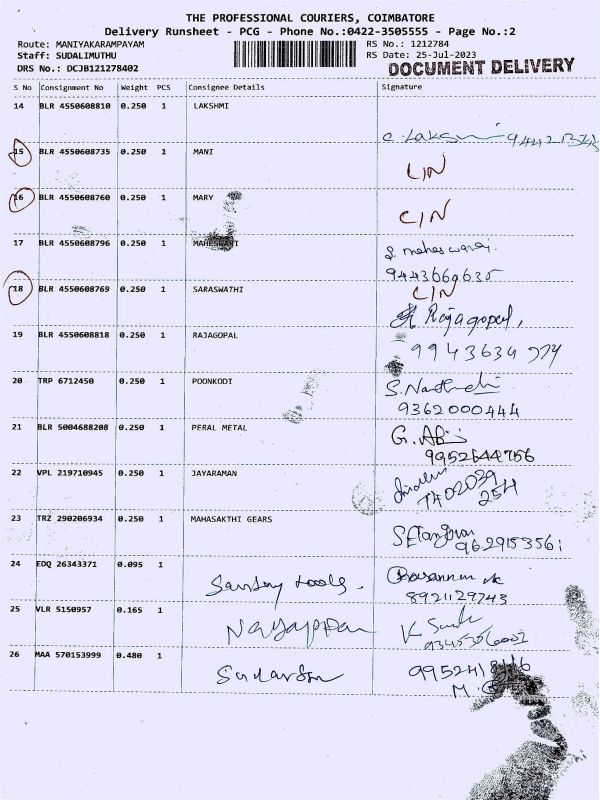 THE PROFESSIONAL COURIERS, COIMBATORE
Delivery Runsheet - PCG - Phone No.:0422-3505555 - Page No.:2
Route: MANIYAKARAMPAYAM RS No.: 1212784
Staff: SUDALIMUTHU RS Date: 25-Jul-2023
DRS No.: DCJB121278402 DOCUMENT DELIVERY
S No Consignment No Weight PCS Consignee Details Signature
14 BLR 4550608810 0.250 1 LAKSHMI
15 BLR 4550608735 0.250 1 MANI
CIN
16 BLR 4550608760 0.250 1 MARY
CIN
17 BLR 4550608796 0.250 1 MAHESWARI
S. maheswari.
9443669635
18 BLR 4550608769 0.250 1 SARASWATHI CIN
Rajagopal,
19 BLR 4550608818 0.250 1 RAJAGOPAL
9943634
20 TRP 6712450 0.250 1 POONKODI
9362000444
21 BLR 5004688208 0.250 1 PERAL METAL G.
9952644756
22 VPL 219710945 0.250 1 JAYARAMAN
23 TRZ 290206934 0.250 1 MAHASAKTHI GEARS
9629153561
24 EDQ 26343371 0.095 1
8921129743
25 VLR 5150957 0.165 1 Nayappan
26 MAA 570153999 0.480 1
M.